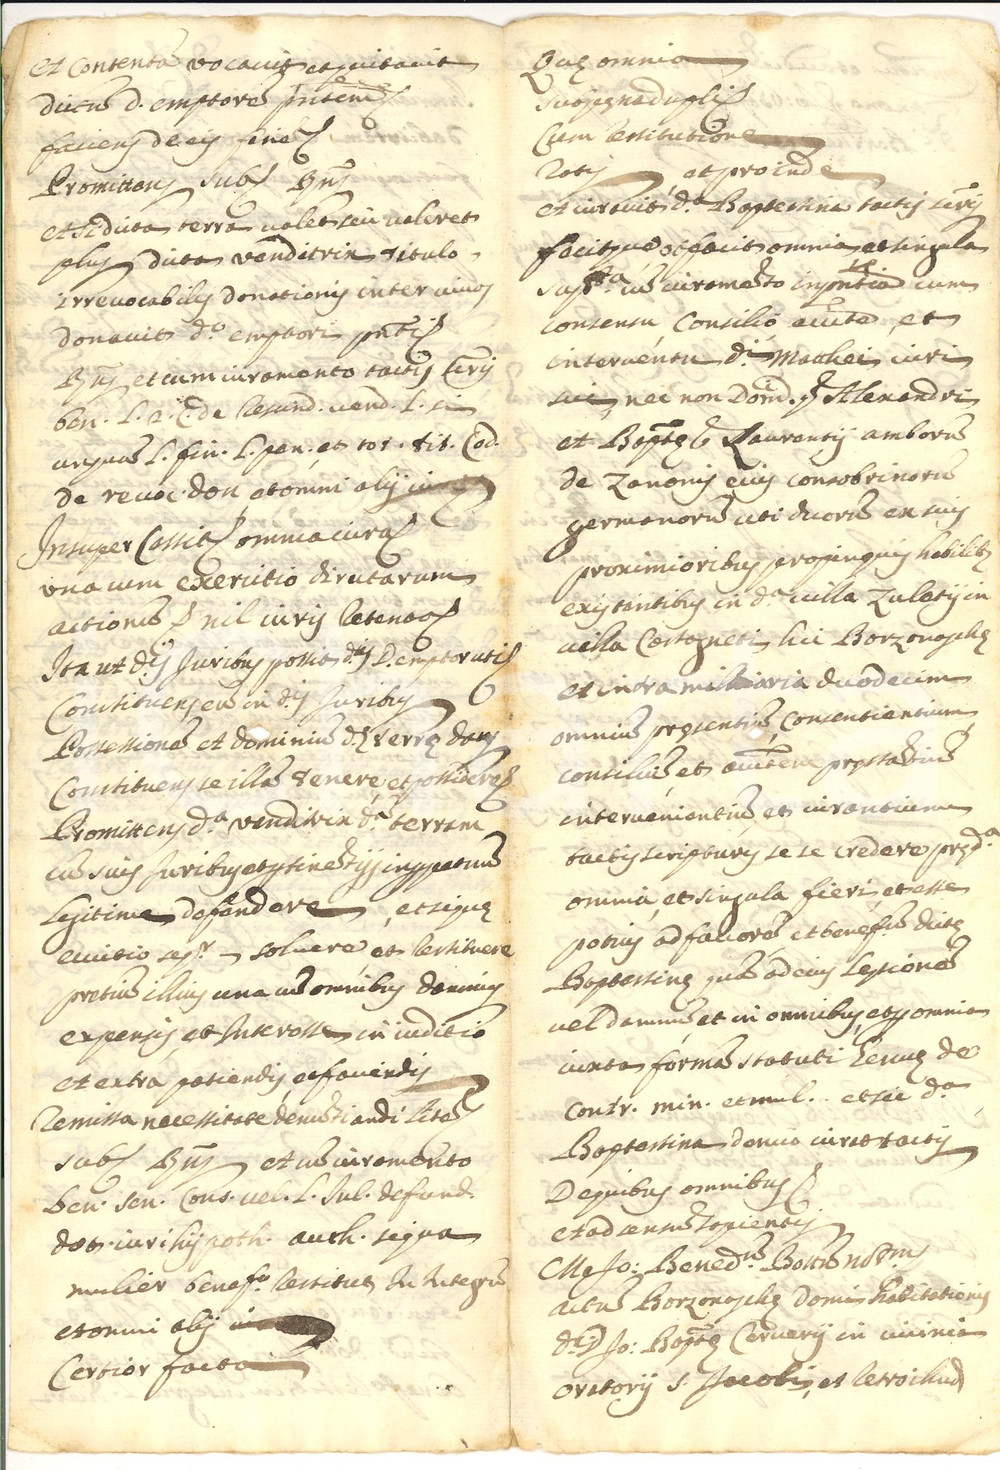 et contentā vocavit et quitavit
dictū d. emptorē pñtem
faciens de eis finē
Promittens sub Bñs
et si dicta terra valet seu valeret
plus dicta venditrix titulo
irrevocabilis donationis inter vivos
donavit d.º emptori pñti
Bñs et cum iuramento tactis
ben. L. 2. C. de rescind. vend. L. si
unquam L. fin. L. pen. et tot. tit. Cod.
de revoc. don et omni alij
Insuper Cessit omnia iura
una cum exercitio dictarum
actionū nil iuris retendo
Ita ut d.is Juribus possit d.us D. emptor uti
Constituens eū in d.is Juribus
Possessionē et dominiū d. terrę dans
Constituens se illā tenere et possidere
Promittens d.a venditrix d.a terram
cū suis Juribus et ptinentijs in ppetuū
legitime defendere et sequę
evictio seq.r solvere et restituere
pretiū illius una cū omnibus damnis
expensis et Interesse in iuditio
et extra patiendis et favendis
Remissa necessitate denuntiandi litē
sub Bñs et cū iuramento
ben. sen. Cons. vel. L. Jul. de fund.
dot. iuri hypoth. auth. siqua
mulier benef.º restitut. In Integrū
et omni alij
Certior facta
Quę omnia
sub pęna dupli
Cum restitutione
Ratis et proinde
et iuravit d.a Baptestina tactis
facitque et facit omnia et singula
supt.a cū iuramento in pñtia cum
consensu Consilio auite et
interventu d.i Matthei viri
sui, nec non Dom. Alexandri
et Baptę Laurentij amborū
de Zanonis eius consobrinorū
germanorū uti duorū ex suis
proximioribus propinquis habilib.
existentibus in d.a villa Zulatij in
villa Castagneti hic Borzonaschę
et intra milliaria duodecim
omniū pręsentiū, Consentientium
consiliū et auitem prestantiū
intervenientiū et iurantium
tactis scripturis se se credere pręd.a
omnia et singula fieri et esse
potius ad favorē et benefitiū dictę
Baptestinę quā ad eius lesionē
vel damnū et in omnibus et p omnia
iuxta formā statuti Genuę de
Contr. min. et mul. et sic d.a
Baptestina denuo iurat tactis
De quibus omnibus
et ad sensū sapientis
Me Jo: Bened.um Bottū not.m
actū Borzonaschę Domi habitationis
d. Jo: Baptę Cervarij in vicinia
oratorij S. Jacobi et